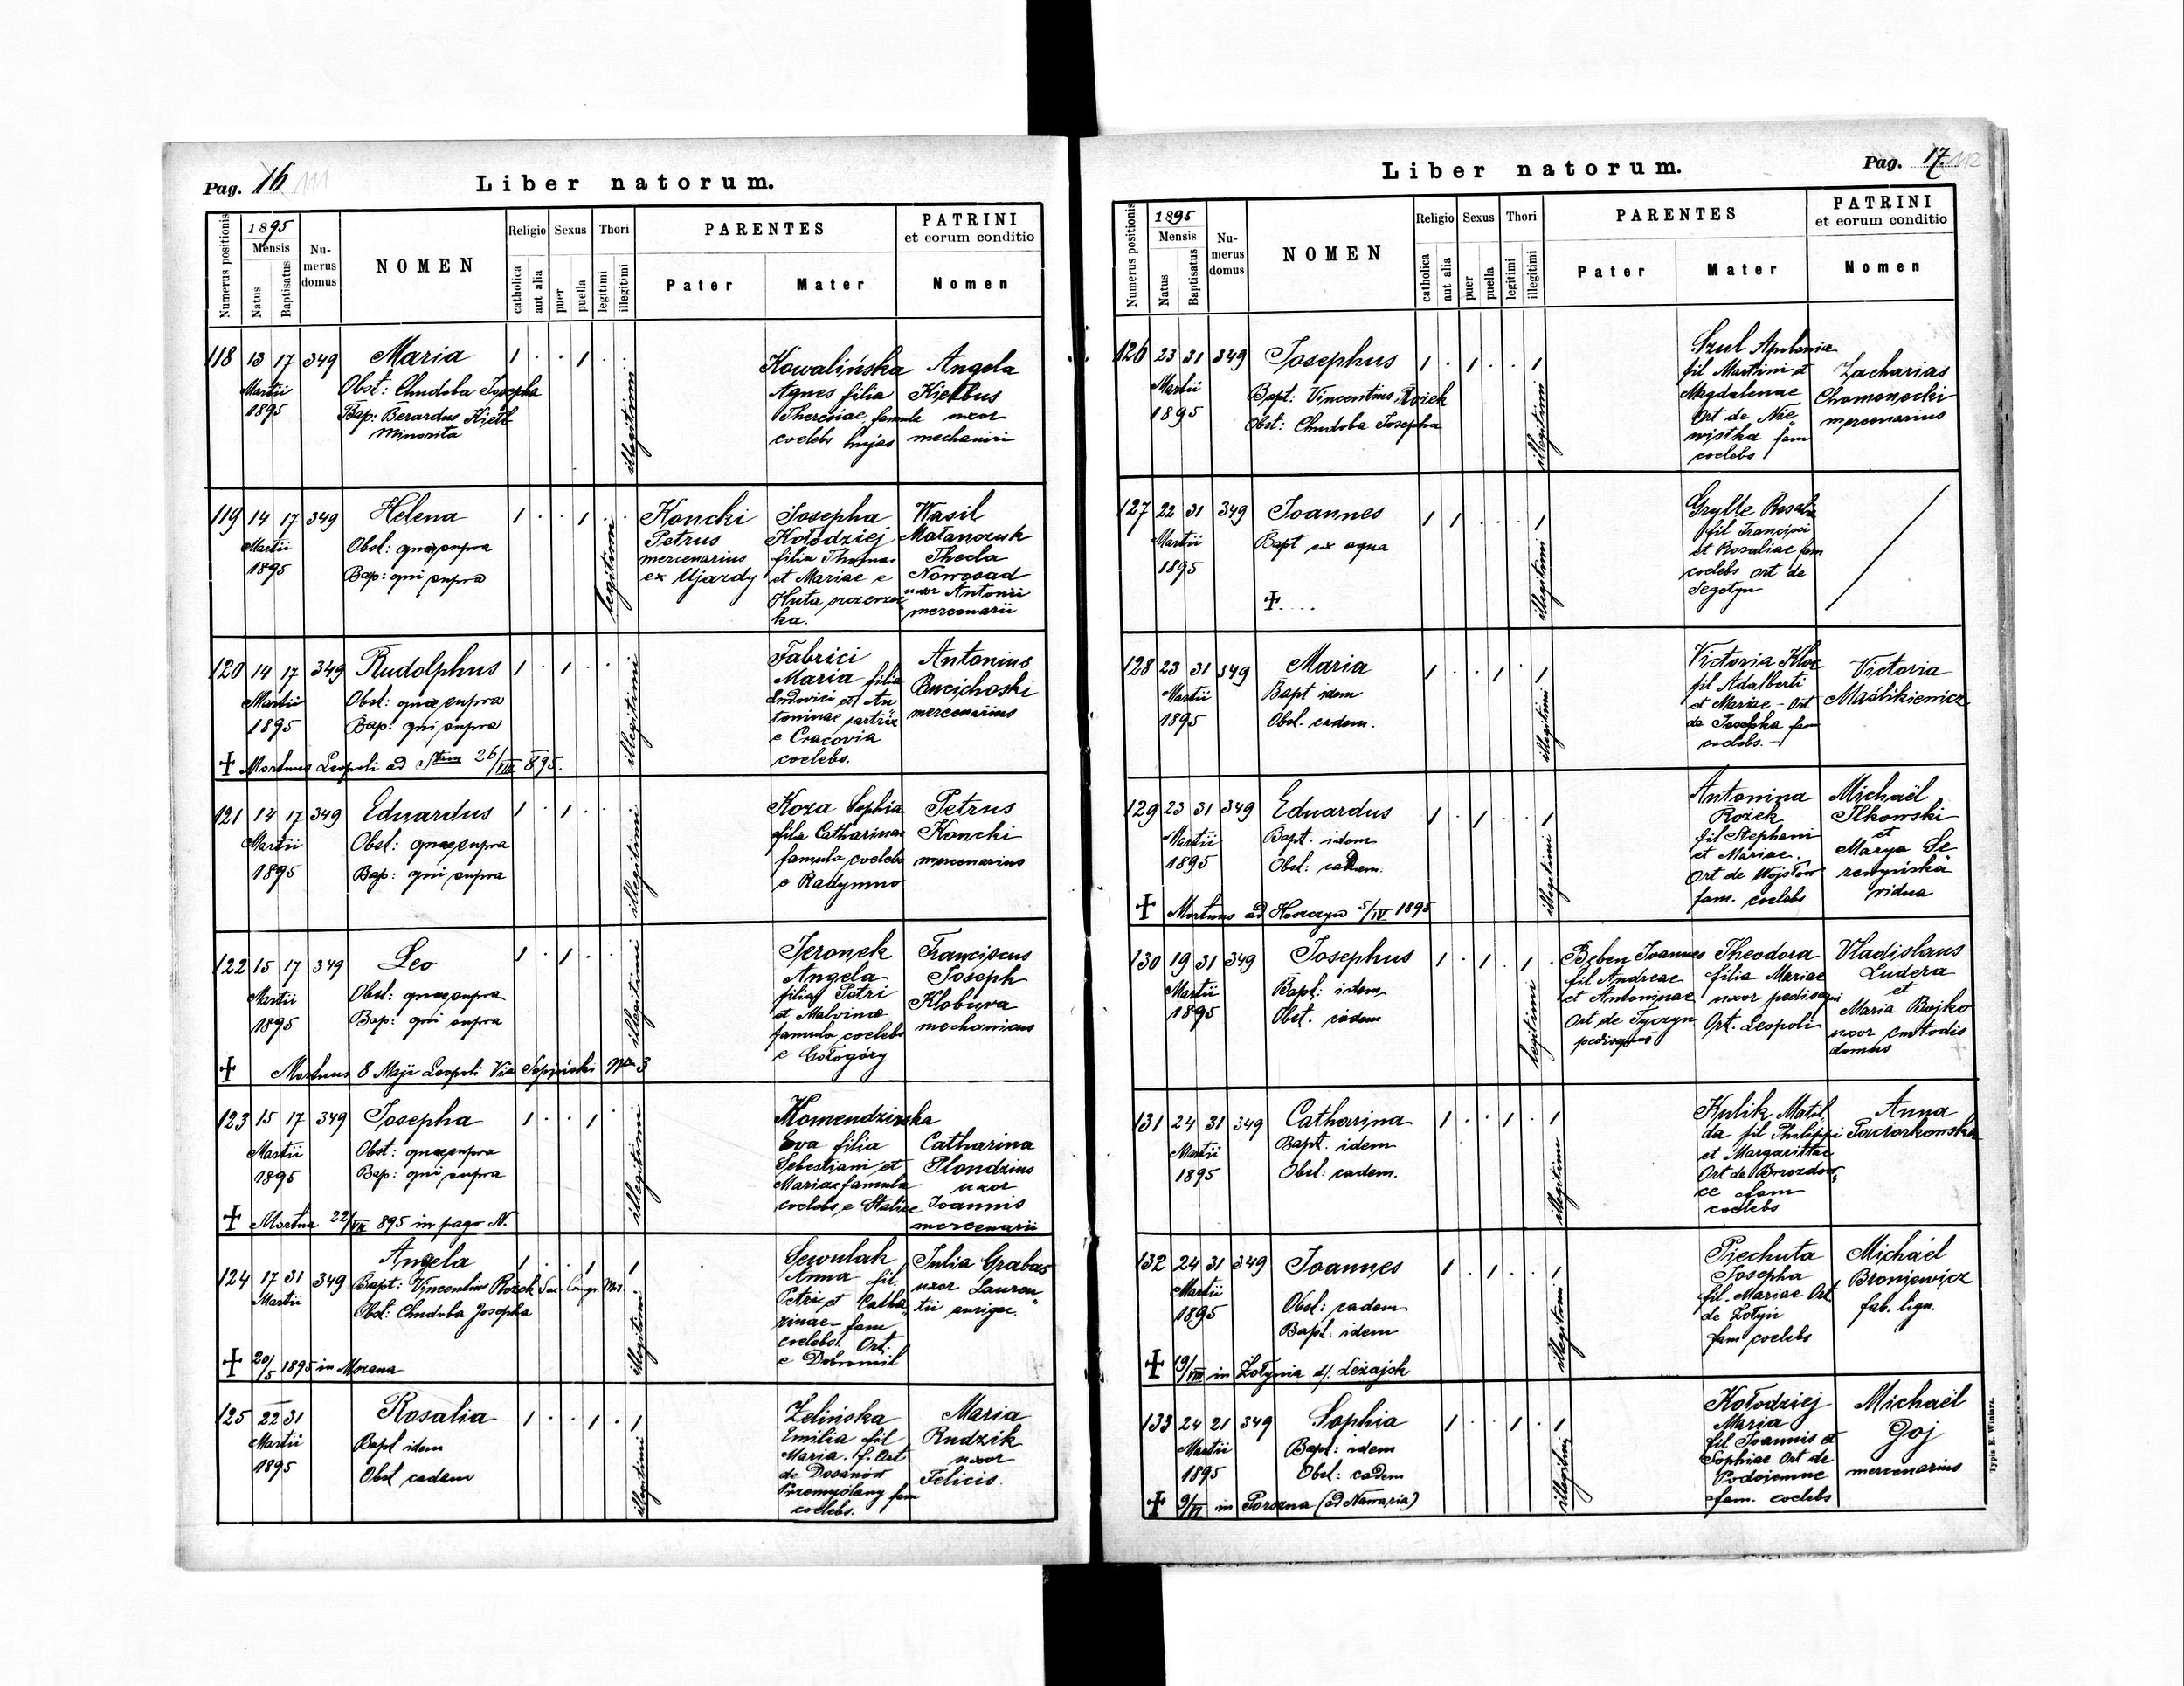 Pag. 16 111
Liber natorum.
Numerus positionis
1895
Mensis
Natus
Baptisatus
Nu-
merus
domus
NOMEN
Religio
catholica
aut alia
Sexus
puer
puella
Thori
legitimi
illegitimi
PARENTES
Pater
Mater
PATRINI
et eorum conditio
Nomen
118 13 17 349 Maria
Martii
1895
Obst: Chudoba Josepha
Bap: Berardus Kiełb
Minorita
illegitimi
Kowalińska
Agnes filia
Theresiae famula
coelebs hujas
Angela
Kiełbus
uxor
mechanici
119 14 17 349 Helena
Martii
1895
Obst: quae supra
Bap: qui supra
legitimi
Koncki
Petrus
mercenarius
ex Ujazdy
Josepha
Kołodziej
filia Thomae
et Mariae e
Huta
ka.
Wasil
Małanczuk
Thecla
Nowosad
uxor Antonii
mercenarii
120 14 17 349 Rudolphus
Martii
1895
Obst: quae supra
Bap: qui supra
illegitimi
Fabrici
Maria filia
Ludovici et An
toninae sartrix
e Cracovia
coelebs.
Antonius
Bucichoski
mercenarius
+ Mortuus Leopoli ad 26/VIII 895.
121 14 17 349 Eduardus
Martii
1895
Obst: quae supra
Bap: qui supra
illegitimi
Koza Sophia
filia Catharinae
famula coelebs
e Radymno
Petrus
Koncki
mercenarius
122 15 17 349 Leo
Martii
1895
Obst: quae supra
Bap: qui supra
illegitimi
Jeronek
Angela
filia Petri
et Malvinae
famula coelebs
e Gołogóry
Franciscus
Joseph
Kłobuva
mechanicus
+ Mortuus 8 Maji Leopoli Via Nro 3
123 15 17 349 Josepha
Martii
1895
Obst: quae supra
Bap: qui supra
illegitimi
Komendzirska
Eva filia
Sebestiani et
Mariae famula
coelebs e
Catharina
Plondzius
uxor
Joannis
mercenarii
+ Mortua 22/VII 895 in pago N.
124 17 31 349 Angela
Martii
Bapt: Vincentius Rożek Sac. Congr. Mis.
Obst: Chudoba Josepha
illegitimi
Sewulak
Anna fil.
Petri et Catha
rinae fam
coelebs. Ort:
e Dobromil
Julia Grabas
uxor Lauren
tii aurigae
+ 20/5 1895 in Mozana
125 22 31 349 Rosalia
Martii
1895
Bapt idem
Obst eadem
illegitimi
Zelińska
Emilia fil
Maria. f. Ort
de Dosanów
Przemyślany fam
coelebs.
Maria
Rudzik
uxor
Felicis.
Pag. 17. 112
Liber natorum.
Numerus positionis
1895
Mensis
Natus
Baptisatus
Nu-
merus
domus
NOMEN
Religio
catholica
aut alia
Sexus
puer
puella
Thori
legitimi
illegitimi
PARENTES
Pater
Mater
PATRINI
et eorum conditio
Nomen
126 23 31 349 Josephus
Martii
1895
Bapt: Vincentius Rożek
Obst: Chudoba Josepha
illegitimi
Szul Apolonia
fil Martini et
Magdalenae
Ort de Nie
wistka fam
coelebs
Zacharias
Chomonecki
mercenarius
127 22 31 349 Joannes
Martii
1895
Bapt ex aqua
+ ....
illegitimi
Grylle Rosalia
fil Francisci
et Rosaliae fam
coelebs ort de
Segetyn
128 23 31 349 Maria
Martii
1895
Bapt idem
Obst. eadem.
illegitimi
Victoria Kloc
fil Adalberti
et Mariae - Ort
de Josefka fam
coelebs. -
Victoria
Maślikiewicz
129 23 31 349 Eduardus
Martii
1895
Bapt. idem
Obst: eadem.
illegitimi
Antonina
Rożek
fil Stephani
et Mariae.
Ort de Wojsław
fam. coelebs
Michaël
Ilkowski
et
Marya Se
renyińska
vidua
+ Mortuus ad Horczyn 5/IV 1895
130 19 31 349 Josephus
Martii
1895
Bapt: idem
Obst. eadem
legitimi
Beben Joannes
fil Andreae
et Antoninae
Ort de Tyczyn
pedisequus
Theodora
filia Mariae
uxor pedisequi
Ort. Leopoli
Vladislaus
Ludera
et
Maria Bojko
uxor custodis
domus
131 24 31 349 Catharina
Martii
1895
Bapt. idem
Obst: eadem.
illegitimi
Kulik Matil
da fil Philippi
et Margarittae
Ort de Brrozdow
ce fam
coelebs
Anna
Paciorkowska
132 24 31 349 Joannes
Martii
1895
Obst: eadem
Bapt: idem
illegitimi
Piechuta
Josepha
fil. Mariae Ort.
de Żołyń
fam coelebs
Michaël
Broniewicz
fab. lign.
+ 19/VIII in Żołynia d/. Leżajsk
133 24 21 349 Sophia
Martii
1895
Bapt: idem
Obst: eadem
illegitimi
Kołodziej
Maria
fil Joannis et
Sophiae Ort de
Podciemne
fam. coelebs
Michaël
Goj
mercenarius
+ 9/VI in Porszna (ad Nawaria)
Typis E. Winiarz.